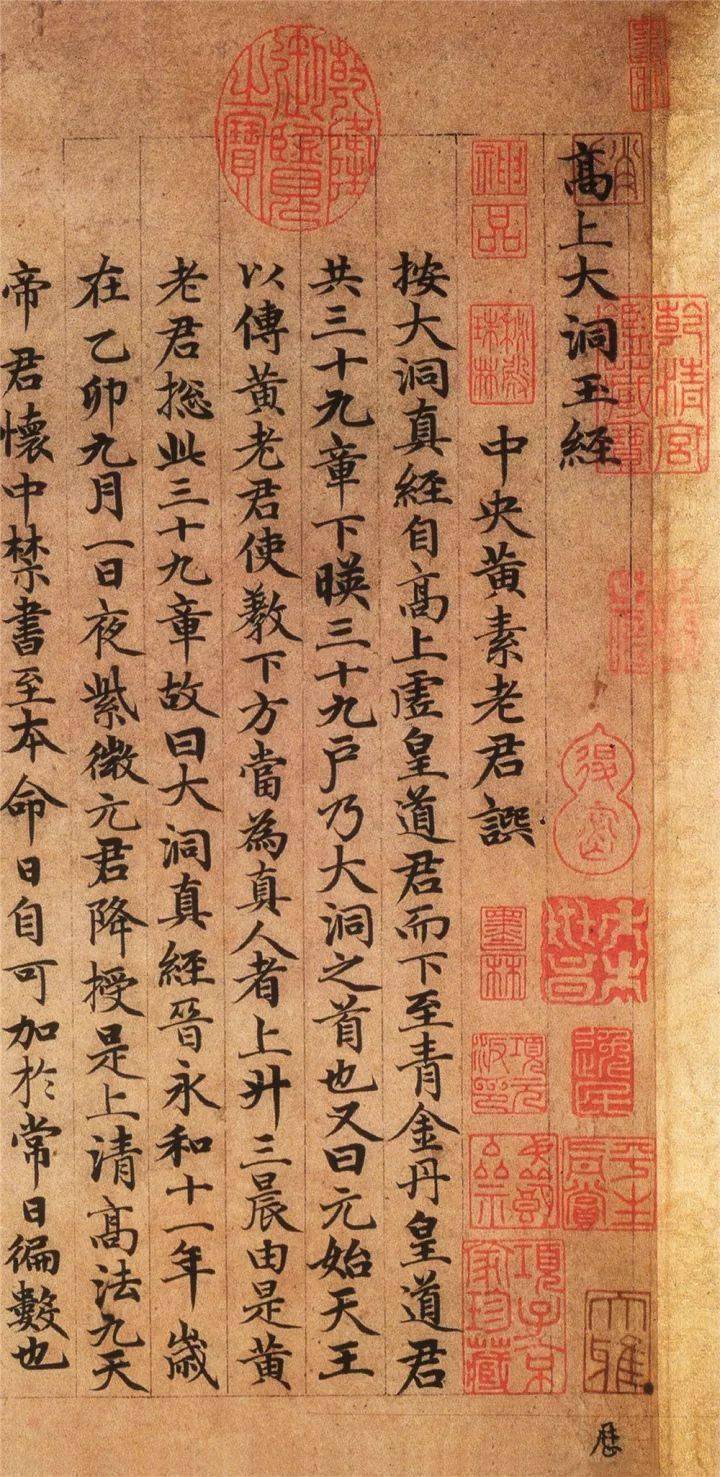 高上大洞玉經
中央黃素老君譔
按大洞真經自高上虛皇道君而下至青金丹皇道君
共三十九章下暎三十九戶乃大洞之首也又曰元始天王
以傳黃老君使教下方當為真人者上升三晨由是黃
老君摠此三十九章故曰大洞真經晉永和十一年歲
在乙卯九月一日夜紫微元君降授是上清高法九天
帝君懷中禁書至本命日自可加於常日徧數也
乾隆御覽之寶
神品
乾清宮鑑藏寶
墨林
項元汴印
子孫世昌
逸民
平生真賞
項子京家珍藏
大雅